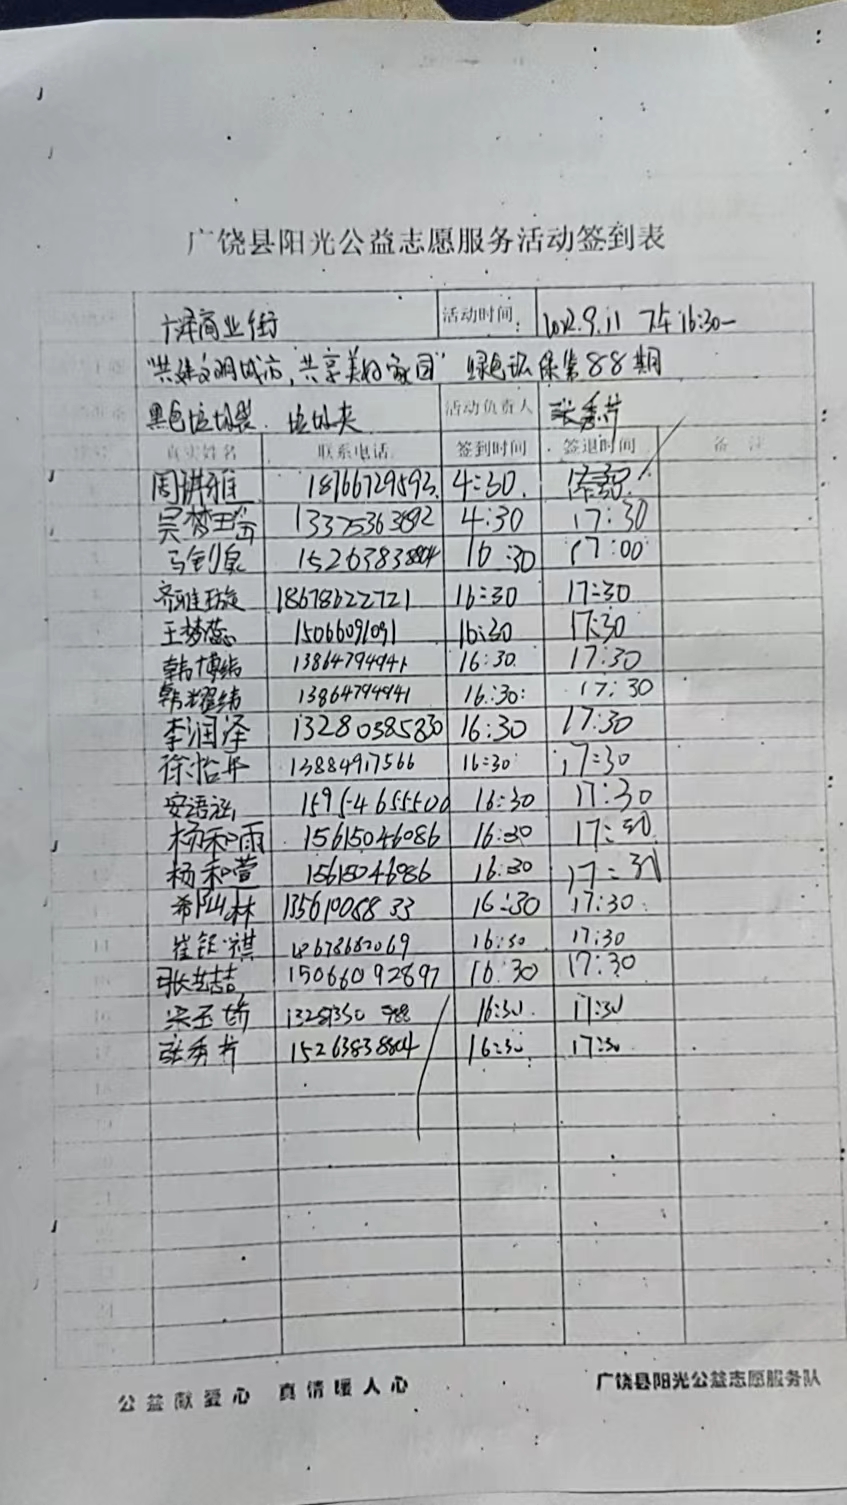 广饶县阳光公益志愿服务活动签到表
商业街 活动时间: 2022.9.11 下午16:30-
"共建文明城市,共享美好家园" 绿色环保第88期
黑色垃圾袋 垃圾夹 活动负责人 张秀芹
真实姓名 联系电话 签到时间 签退时间 备 注
4:30
4:30 17:30
15263838804 16:30 17:00
齐雅璇 18678622721 16:30 17:30
王梦蕊 15066091091 16:30 17:30
韩博纬 13864794941 16:30 17:30
韩耀纬 13864794941 16:30 17:30
李润泽 13280385830 16:30 17:30
徐怡平 13884917566 16:30 17:30
安语涵 15954655500 16:30 17:30
杨和雨 15615046086 16:30 17:30
杨和萱 15615046086 16:30 17:30
林 13561008833 16:30 17:30
崔钰祺 18678682069 16:30 17:30
张喆 15066092897 16:30 17:30
16:30 17:30
张秀芹 15263838804 16:30 17:30
公益献爱心 真情暖人心 广饶县阳光公益志愿服务队